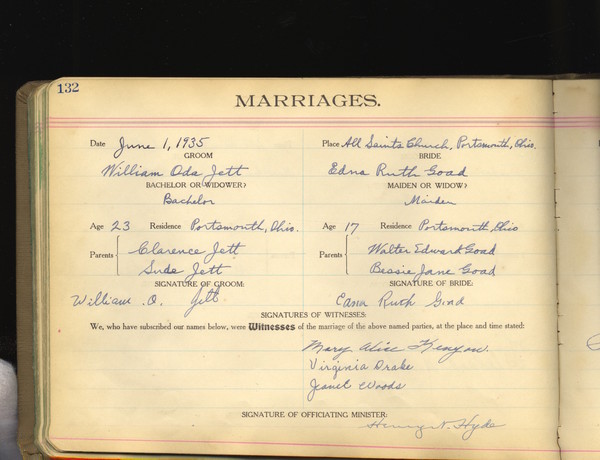 132
MARRIAGES.
Date June 1, 1935 Place All Saints Church, Portsmouth, Ohio.
GROOM BRIDE
William Oda Jett Edna Ruth Goad
BACHELOR OR WIDOWER? MAIDEN OR WIDOW?
Bachelor Maiden
Age 23 Residence Portsmouth, Ohio. Age 17 Residence Portsmouth, Ohio
Parents Clarence Jett Parents Walter Edward Goad
Sude Jett Bessie Jane Goad
SIGNATURE OF GROOM: SIGNATURE OF BRIDE:
William .O. Jett Edna Ruth Goad
SIGNATURES OF WITNESSES:
We, who have subscribed our names below, were Witnesses of the marriage of the above named parties, at the place and time stated:
Mary Alice Kenyon.
Virginia Drake
Janet Woods
SIGNATURE OF OFFICIATING MINISTER:
Henry N. Hyde